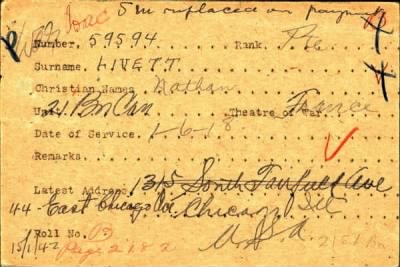 S.M. replaced on payment
Number. 59594 Rank. Pte
Surname. LIVETT.
Christian Names Nathan
Unit. 21. Bn Can Theatre of War. France
Date of Service. 1-6-18
Remarks.
Latest Address. 1315 South Ave
44 East Chicago Chicago Ill
Roll No. U.S.A. 21st Bn
15/1/42 Page 2182